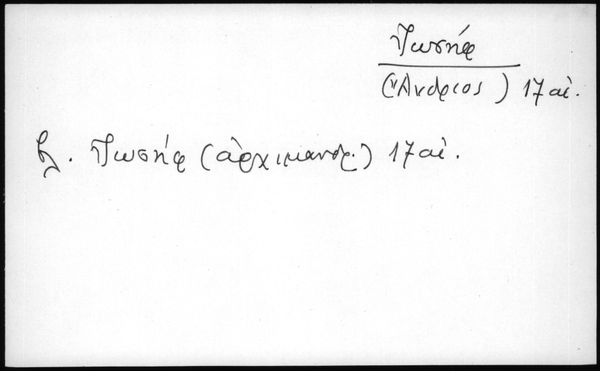 Ἰωσήφ
(Ἄνδριος) 17 αἰ.
βλ. Ἰωσήφ (ἀρχιμανδρ.) 17 αἰ.